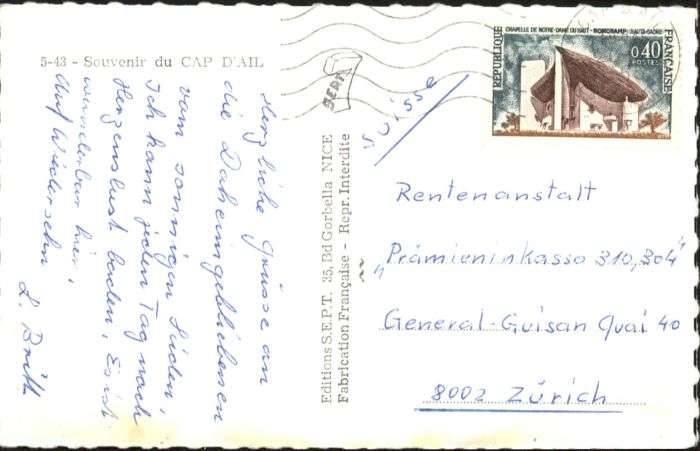 5-43 - Souvenir du CAP D'AIL
Herzliche Grüsse an
die Daheimgebliebenen
vom sonnigen Süden,
Ich kann jeden Tag nach
Herzenslust baden, Es ist
wunderbar hier,
Auf Wiedersehn
Editions S.E.P.T. 35, Bd Gorbella NICE
Fabrication Française - Repr. Interdite
CHAPELLE DE NOTRE-DAME DU HAUT - RONCHAMP (HAUTE-SAÔNE)
RÉPUBLIQUE
FRANÇAISE
0,40
POSTES
Suisse
Rentenanstalt
"Prämieninkasso 310,304"
General-Guisan Quai 40
8002 Zürich